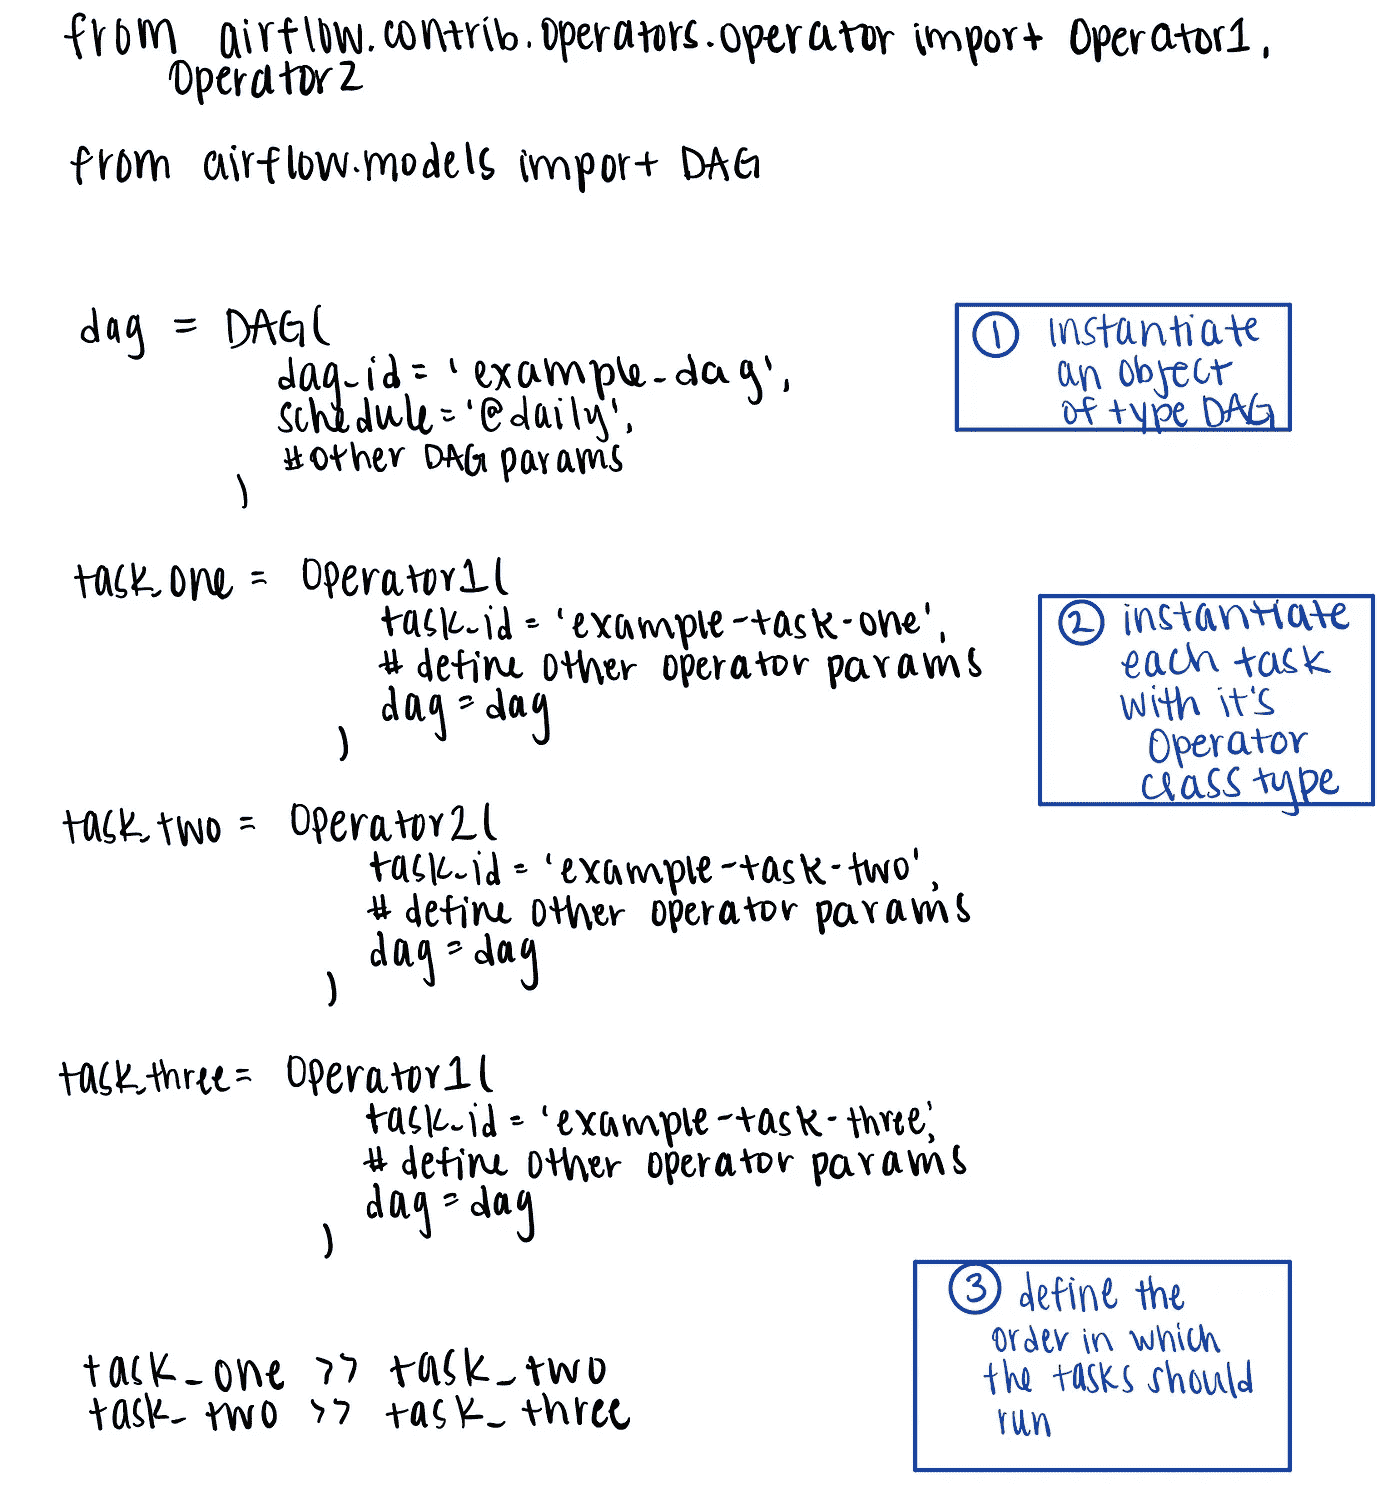 from airflow.contrib.operators.operator import Operator1,
Operator2
from airflow.models import DAG
dag = DAG(
dag_id = 'example-dag',
schedule = '@daily',
#other DAG params
)
① instantiate
an object
of type DAG
task_one = Operator1(
task_id = 'example-task-one',
# define other operator params
dag = dag
)
② instantiate
each task
with it's
Operator
class type
task_two = Operator2(
task_id = 'example-task-two',
# define other operator params
dag = dag
)
task_three = Operator1(
task_id = 'example-task-three',
# define other operator params
dag = dag
)
③ define the
order in which
the tasks should
run
task_one >> task_two
task_two >> task_three